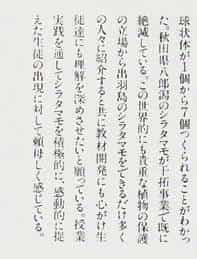 球状体が1個から7個つくられることがわかっ
た。秋田県八郎潟のシラタマモが干拓事業で既に
絶滅している。この世界的にも貴重な植物の保護
の立場から出羽島のシラタマモをできるだけ多く
の人々に紹介すると共に教材開発にも心がけ生
徒達にも理解を深めさせたいと願っている。授業
実践を通してシラタマモを積極的に、感動的に捉
えた生徒の出現に対して頼母しく感じている。